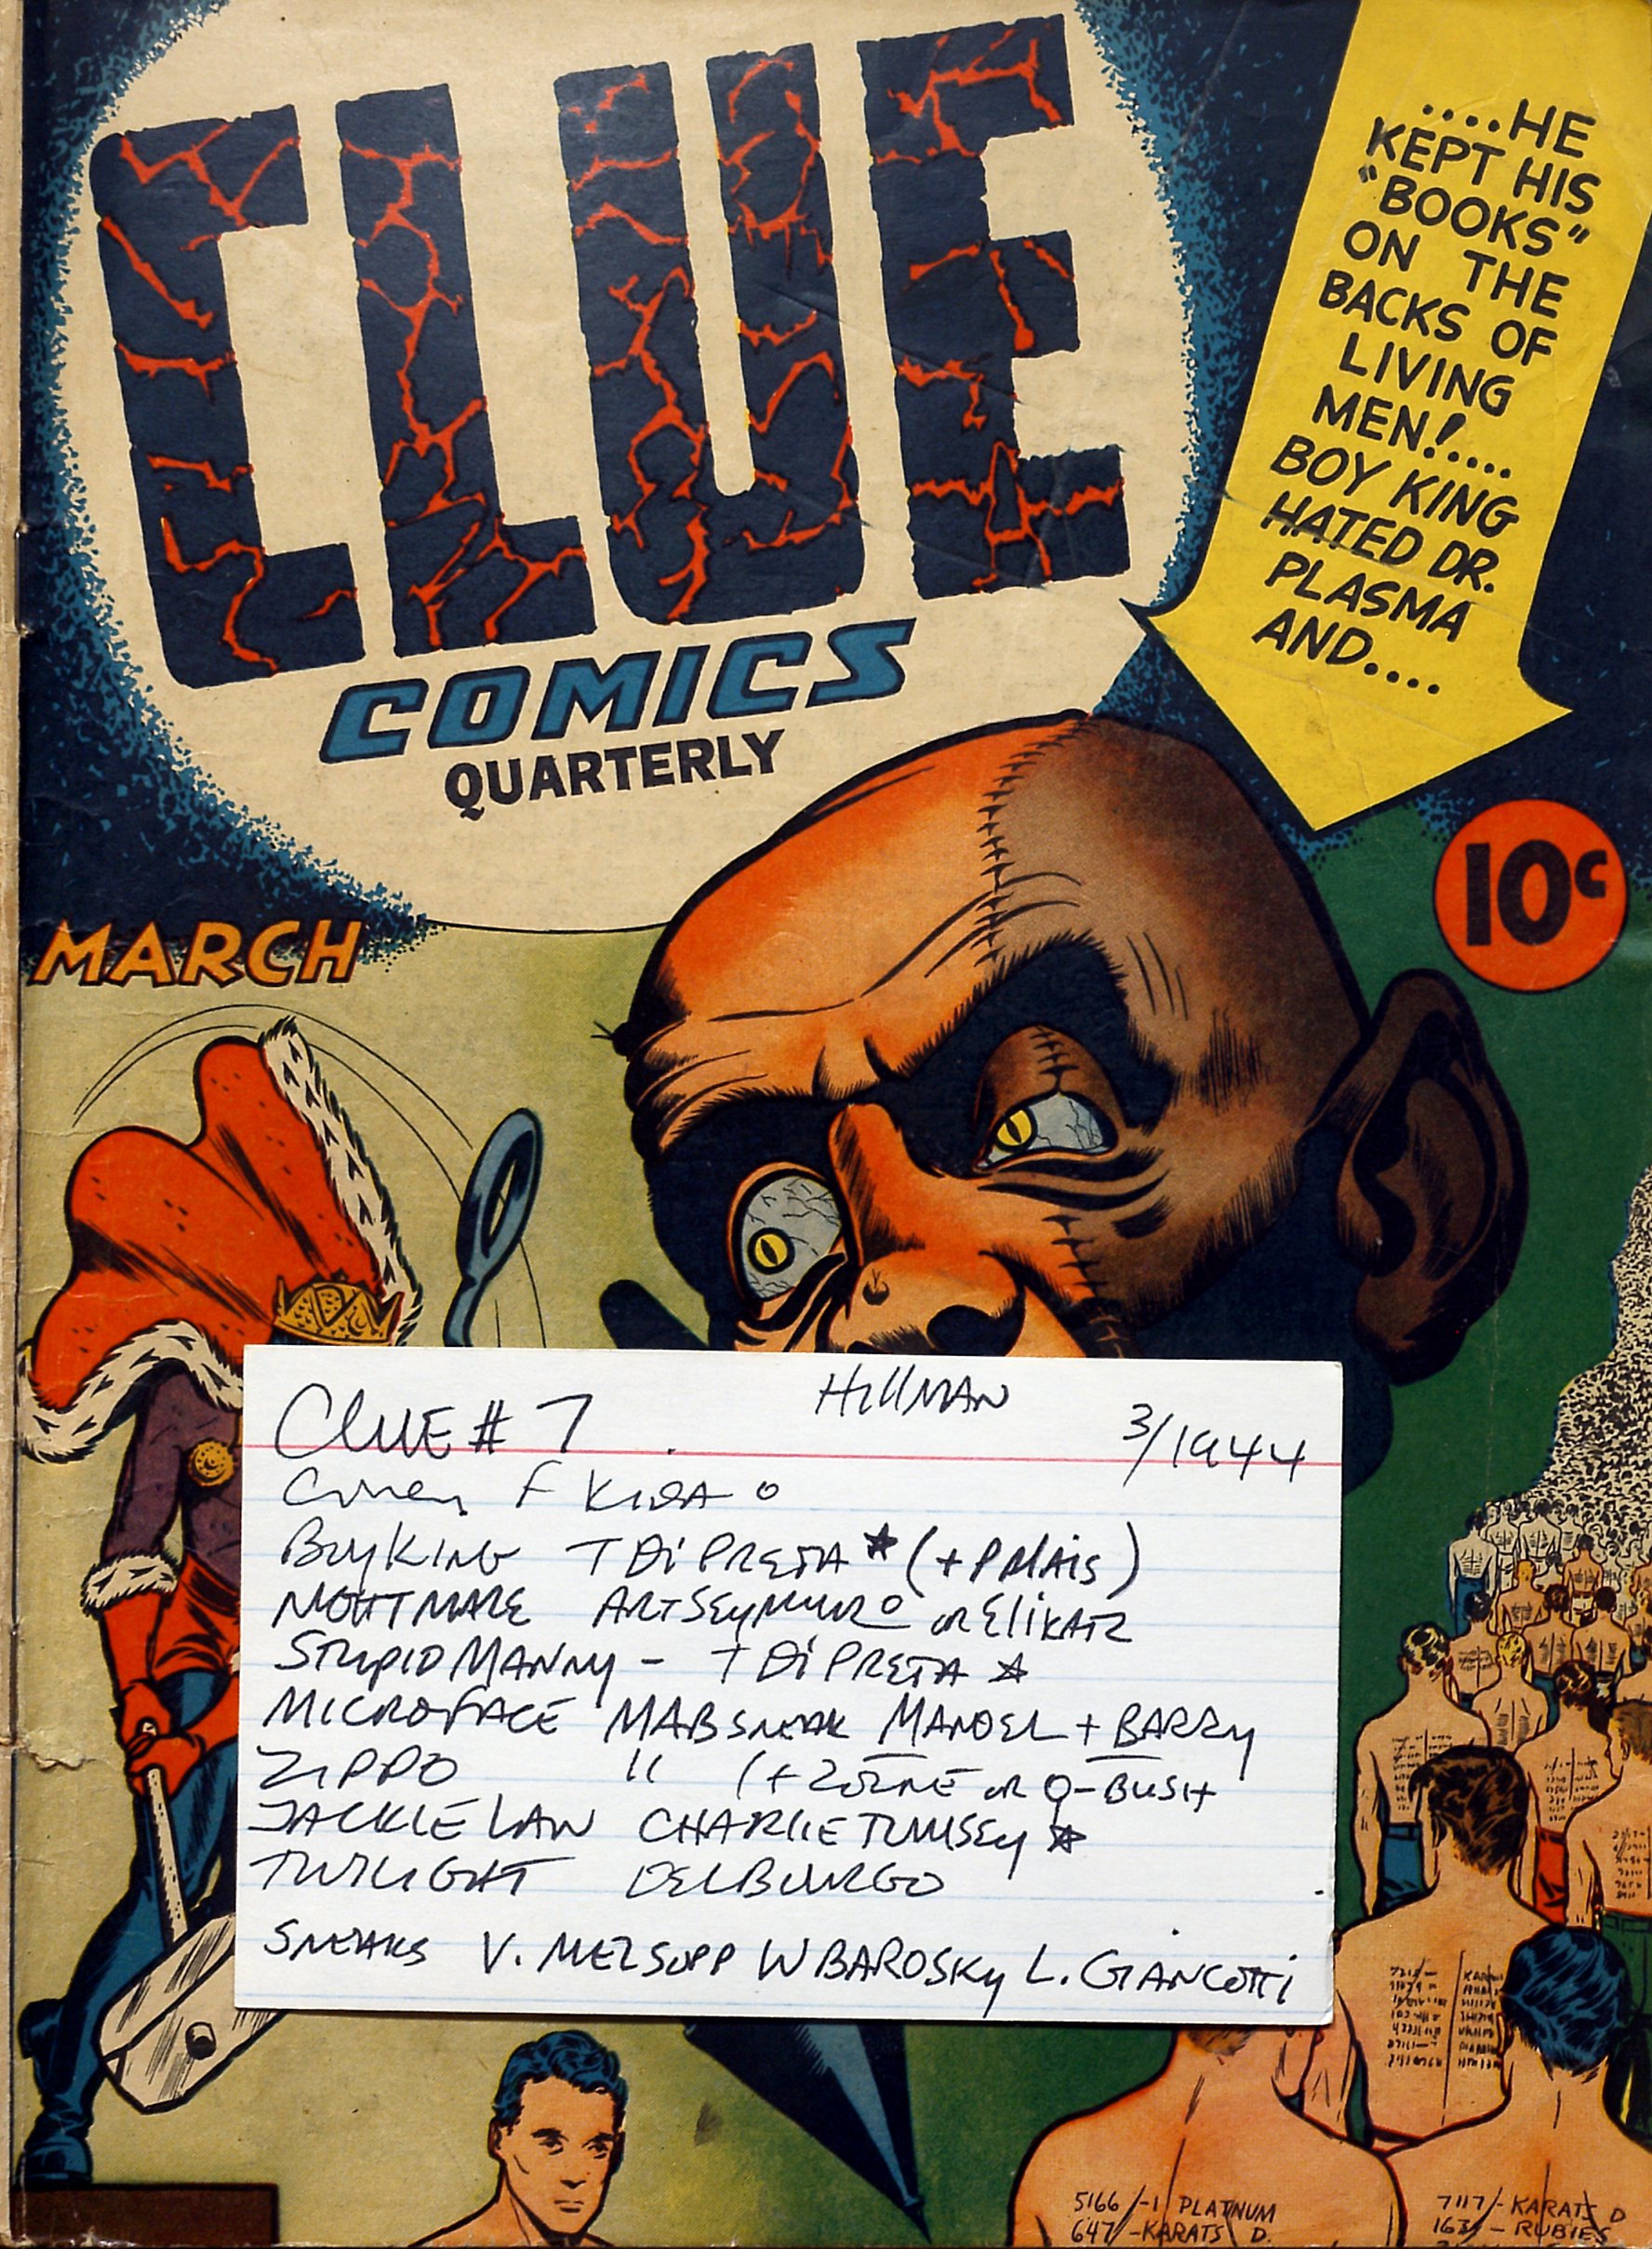 CLUE
COMICS
QUARTERLY
....HE
KEPT HIS
"BOOKS"
ON THE
BACKS OF
LIVING
MEN!....
BOY KING
HATED DR.
PLASMA
AND....
10¢
MARCH
CLUE # 7 HILLMAN 3/1944
Cover F KIDA
BOY KING T DiPRETA ★ (+ PALAIS)
NIGHTMARE ART SEYMOUR or ELI KATZ
STUPID MANNY - T DiPRETA ☆
MICROFACE MAB SNEAK MANDEL + BARRY
ZIPPO " (+ or Q-BUSH
JACKIE LAW CHARLIE TUMSEY ★
TWILIGHT DELBURGO
SNEAKS V. MEZSUPP W BAROSKY L. GIANCOTTI
5166/-1 PLATINUM
647/-KARATS D.
7117/-KARATS D
163/- RUBIES